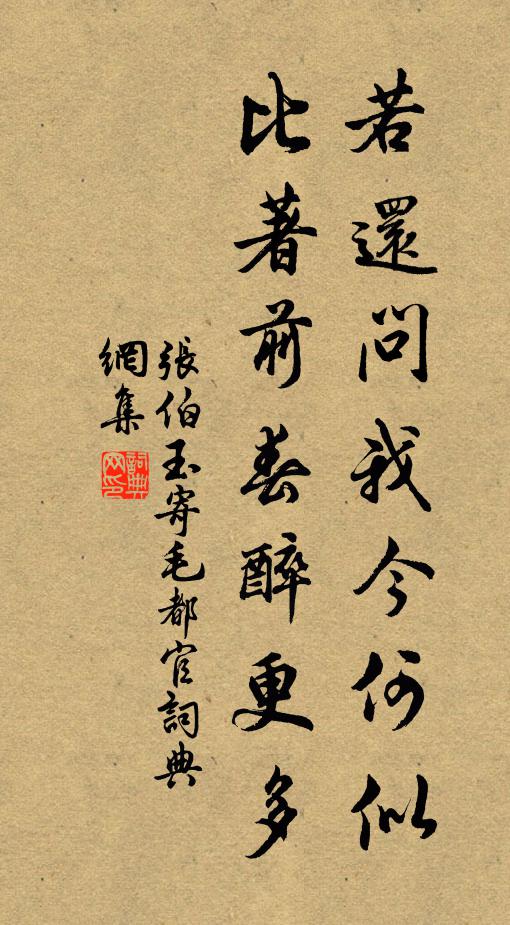 若還問我今何似
比著前春醉更多
張伯玉寄毛都官詞典
網集
詞典網印